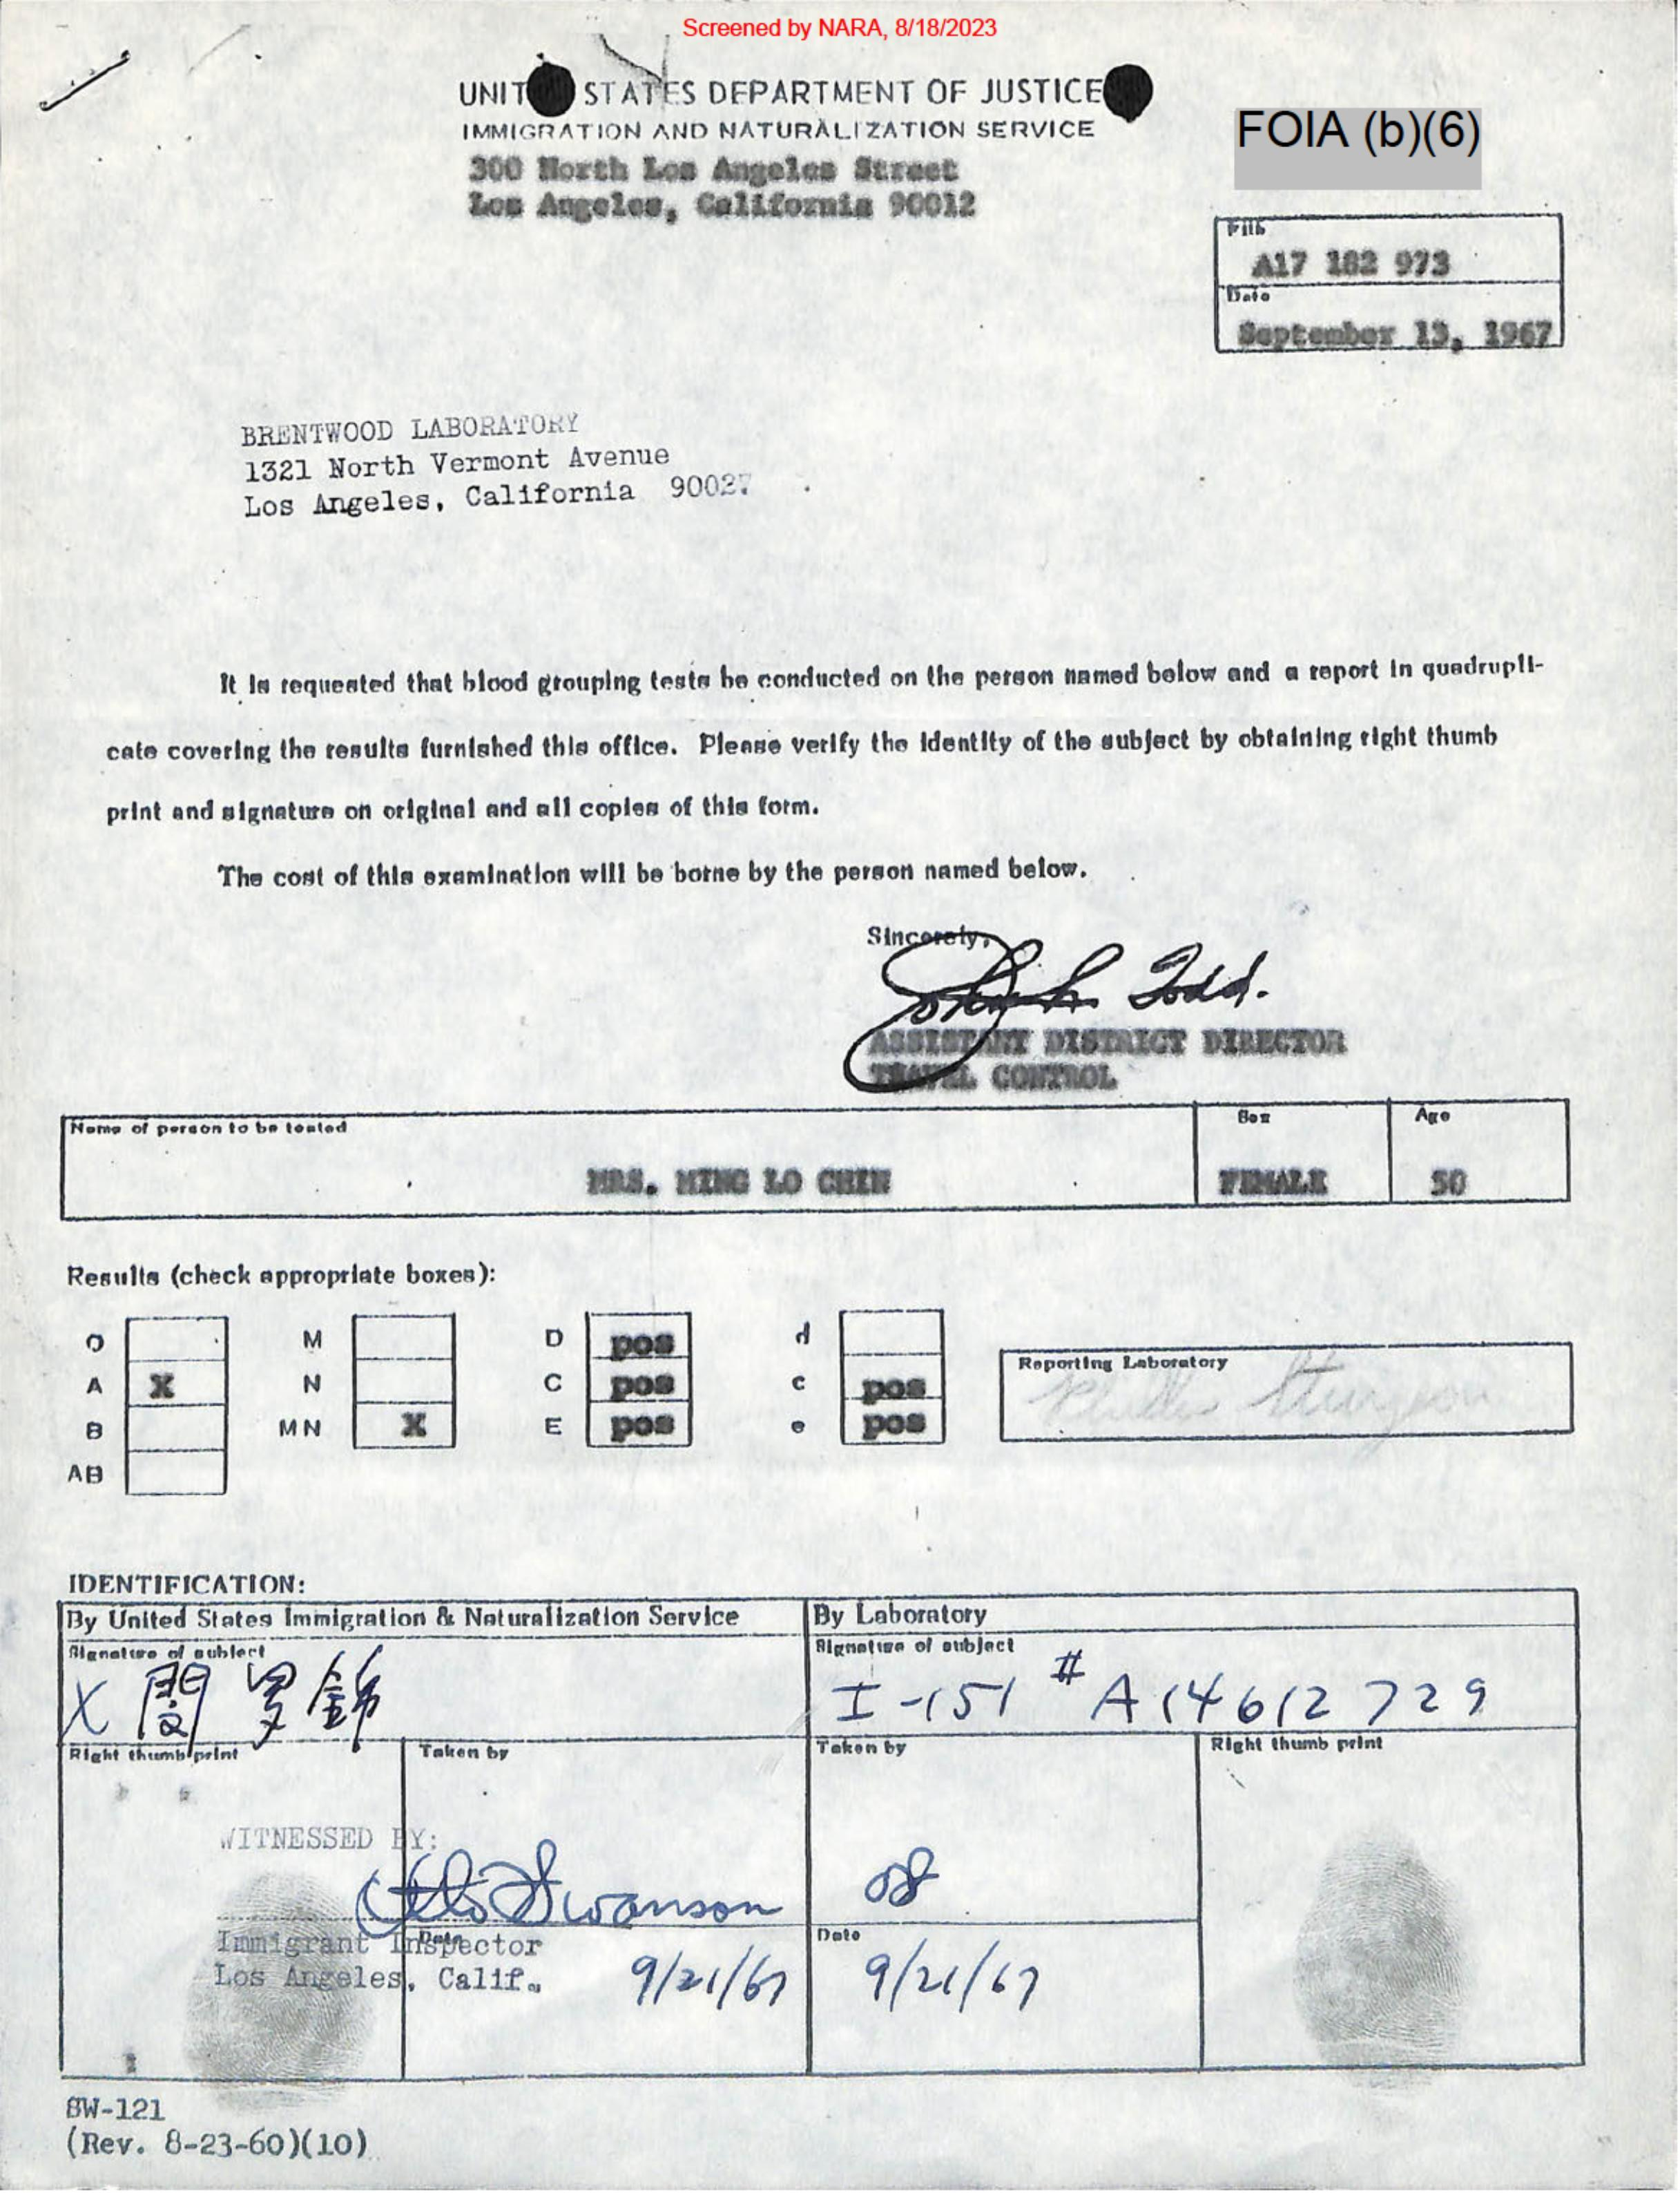 Screened by NARA, 8/18/2023
UNIT STATES DEPARTMENT OF JUSTICE
IMMIGRATION AND NATURALIZATION SERVICE
300 North Los Angeles Street
Los Angeles, California 90012
FOIA (b)(6)
File
A17 182 973
Date
September 13, 1967
BRENTWOOD LABORATORY
1321 North Vermont Avenue
Los Angeles, California 90027
It is requested that blood grouping tests be conducted on the person named below and a report in quadrupli-
cate covering the results furnished this office. Please verify the identity of the subject by obtaining right thumb
print and signature on original and all copies of this form.
The cost of this examination will be borne by the person named below.
Sincerely,
Todd.
ASSISTANT DISTRICT DIRECTOR
TRAVEL CONTROL
Name of person to be tested
Sex
Age
MRS. MING LO CHIN
FEMALE
50
Results (check appropriate boxes):
O M D pos d
A X N C pos c pos
B MN X E pos e pos
AB
Reporting Laboratory
IDENTIFICATION:
By United States Immigration & Naturalization Service
By Laboratory
Signature of subject
Signature of subject
X
I-151 # A14612729
Right thumb print
Taken by
Taken by
Right thumb print
WITNESSED BY:
Otto Swanson
Immigrant Inspector
Date
Date
Los Angeles, Calif.
9/21/67
9/21/67
SW-121
(Rev. 8-23-60)(10)